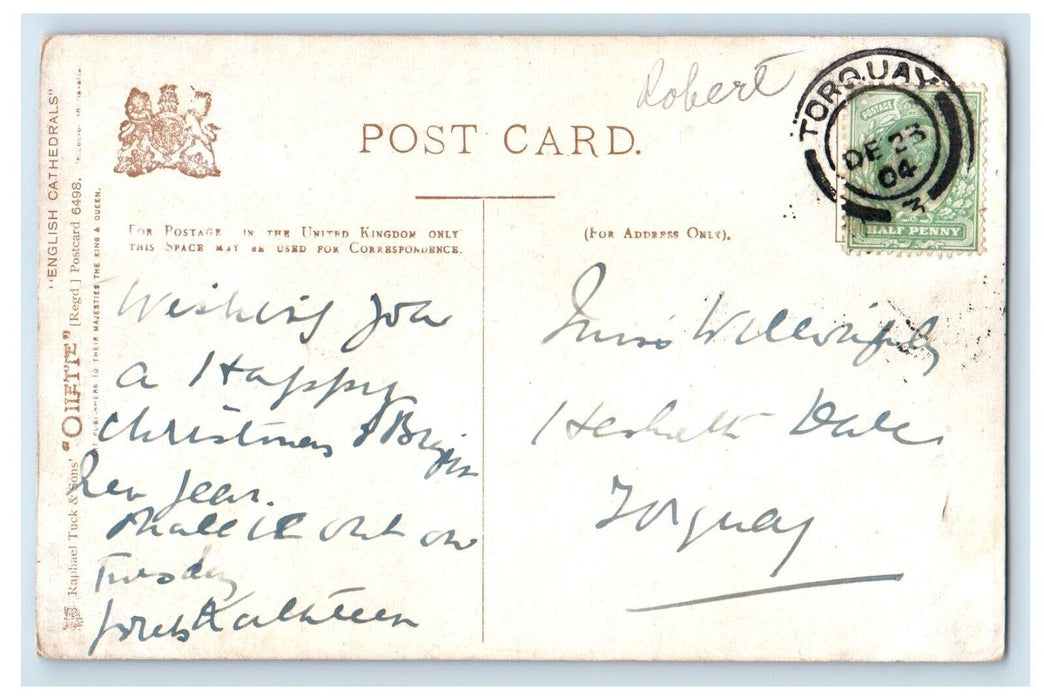 "ENGLISH CATHEDRALS"
Raphael Tuck & Sons' "OILETTE" [Regd.] Postcard 6498.
PUBLISHERS TO THEIR MAJESTIES THE KING & QUEEN.
POST CARD.
Robert
TORQUAY
DE 23
04
3
POSTAGE
HALF PENNY
FOR POSTAGE IN THE UNITED KINGDOM ONLY
THIS SPACE MAY BE USED FOR CORRESPONDENCE.
(FOR ADDRESS ONLY).
Wishing you
a Happy
Christmas & Bright
New Year.
Shall be out on
Tuesday
Kathleen
Miss Willoughby
Dale
Torquay